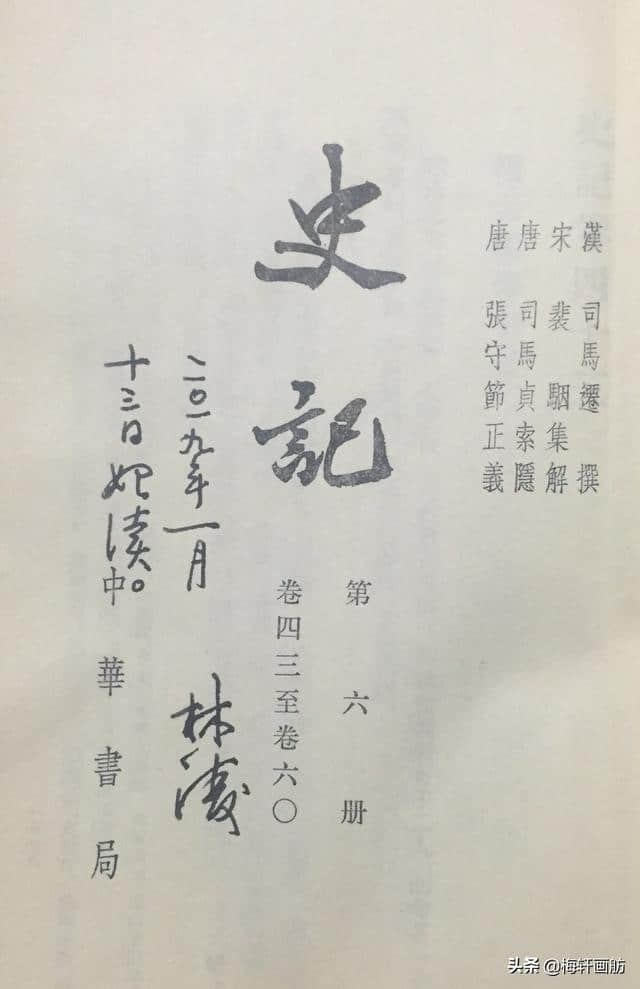 漢 司馬遷 撰
宋 裴駰集解
唐 司馬貞索隱
唐 張守節正義
史記
第六册
卷四三至卷六〇
二〇一九年一月
十三日始读。
林涛
中華書局
头条 @梅轩画舫